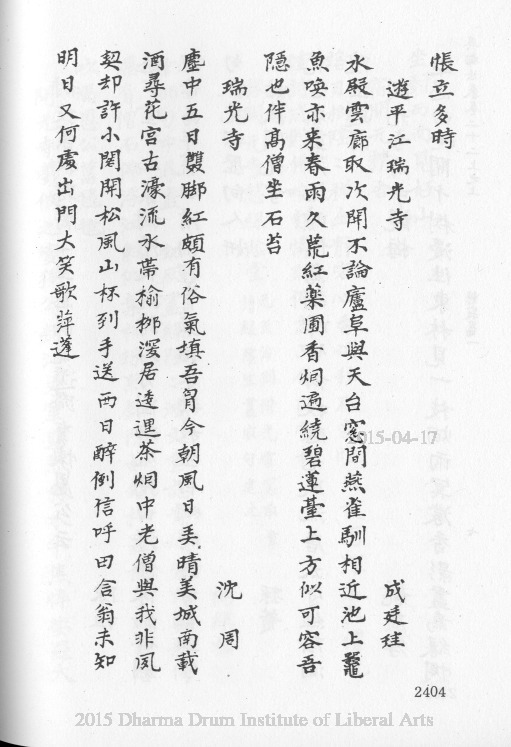 悵立多時
遊平江瑞光寺
成廷珪
水殿雲廊取次開不論廬阜與天台窻間燕雀馴相近池上黿
魚喚亦來春雨久荒紅藥圃香烟遍繞碧蓮臺上方似可容吾
隱也伴高僧坐石苔
瑞光寺
沈周
塵中五日襲脚紅頗有俗氣填吾胷今朝風日美晴美城南載
酒尋花宫古濠流水帶榆栁深居逶迤茶烟中老僧與我非夙
契却許小閣開松風山杯到手送西日醉倒信呼田舍翁未知
明日又何處出門大笑歌萍蓬
2404
2015-04-17
2015 Dharma Drum Institute of Liberal Arts